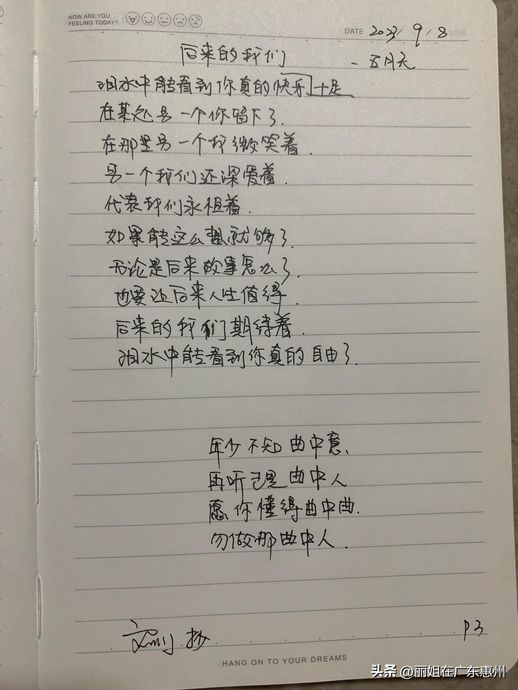 HOW ARE YOU
FEELING TODAY?
DATE 2023/9/8
后来的我们
-五月天
泪水中能看到你真的快乐
在某处另一个你留下了.
在那里另一个我微笑着.
另一个我们还深爱着.
代表我们永相着.
如果能这么想就够了.
无论是后来故事怎么了.
也要让后来人生值得.
后来的我们期待着.
泪水中能看到你真的自由了.
年少不知曲中意.
再听已是曲中人
愿你懂得曲中曲.
勿做那曲中人.
抄
P3
HANG ON TO YOUR DREAMS
头条 @丽姐在广东惠州